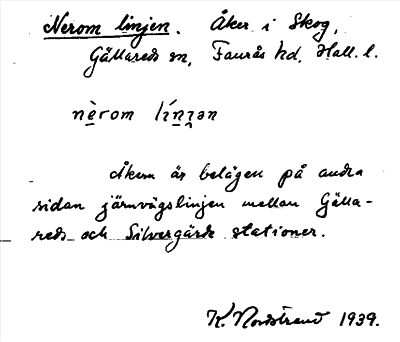 Nerom linjen. Åker i Skog,
Gällareds sn, Faurås hd, Hall. l.
nèrom línjən
Åkern är belägen på andra
sidan järnvägslinjen mellan Gälla-
reds och Silvergärde stationer.
K. Nordstrand 1939.